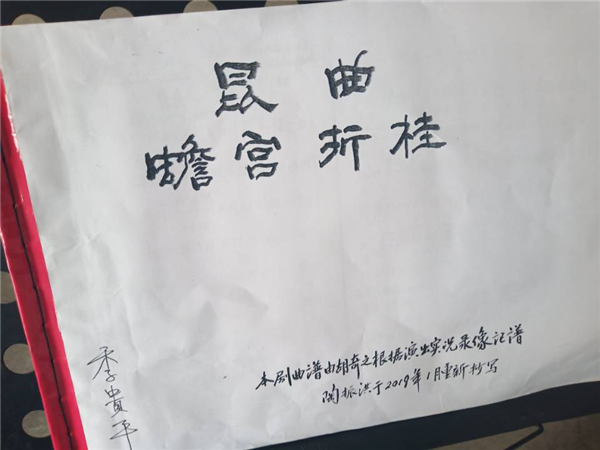 昆曲
蟾宫折桂
本剧曲谱由胡奇之根据演出实况录像记谱
陶振洪于2019年1月重新抄写
季贵平